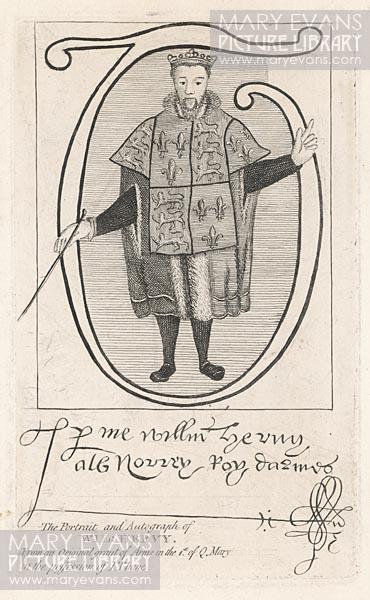 MARY EVANS
PICTURE LIBRARY
www.maryevans.com
MARY EVANS
PICTURE LIBRARY
www.maryevans.com
p me Willm̃ Hervy
als Norrey Roy darmes
The Portrait and Autograph of
HERVY.
From an Original grant of Arms in the 1st. of Q. Mary
in the
MARY EVANS
PICTURE LIBRARY
www.maryevans.com